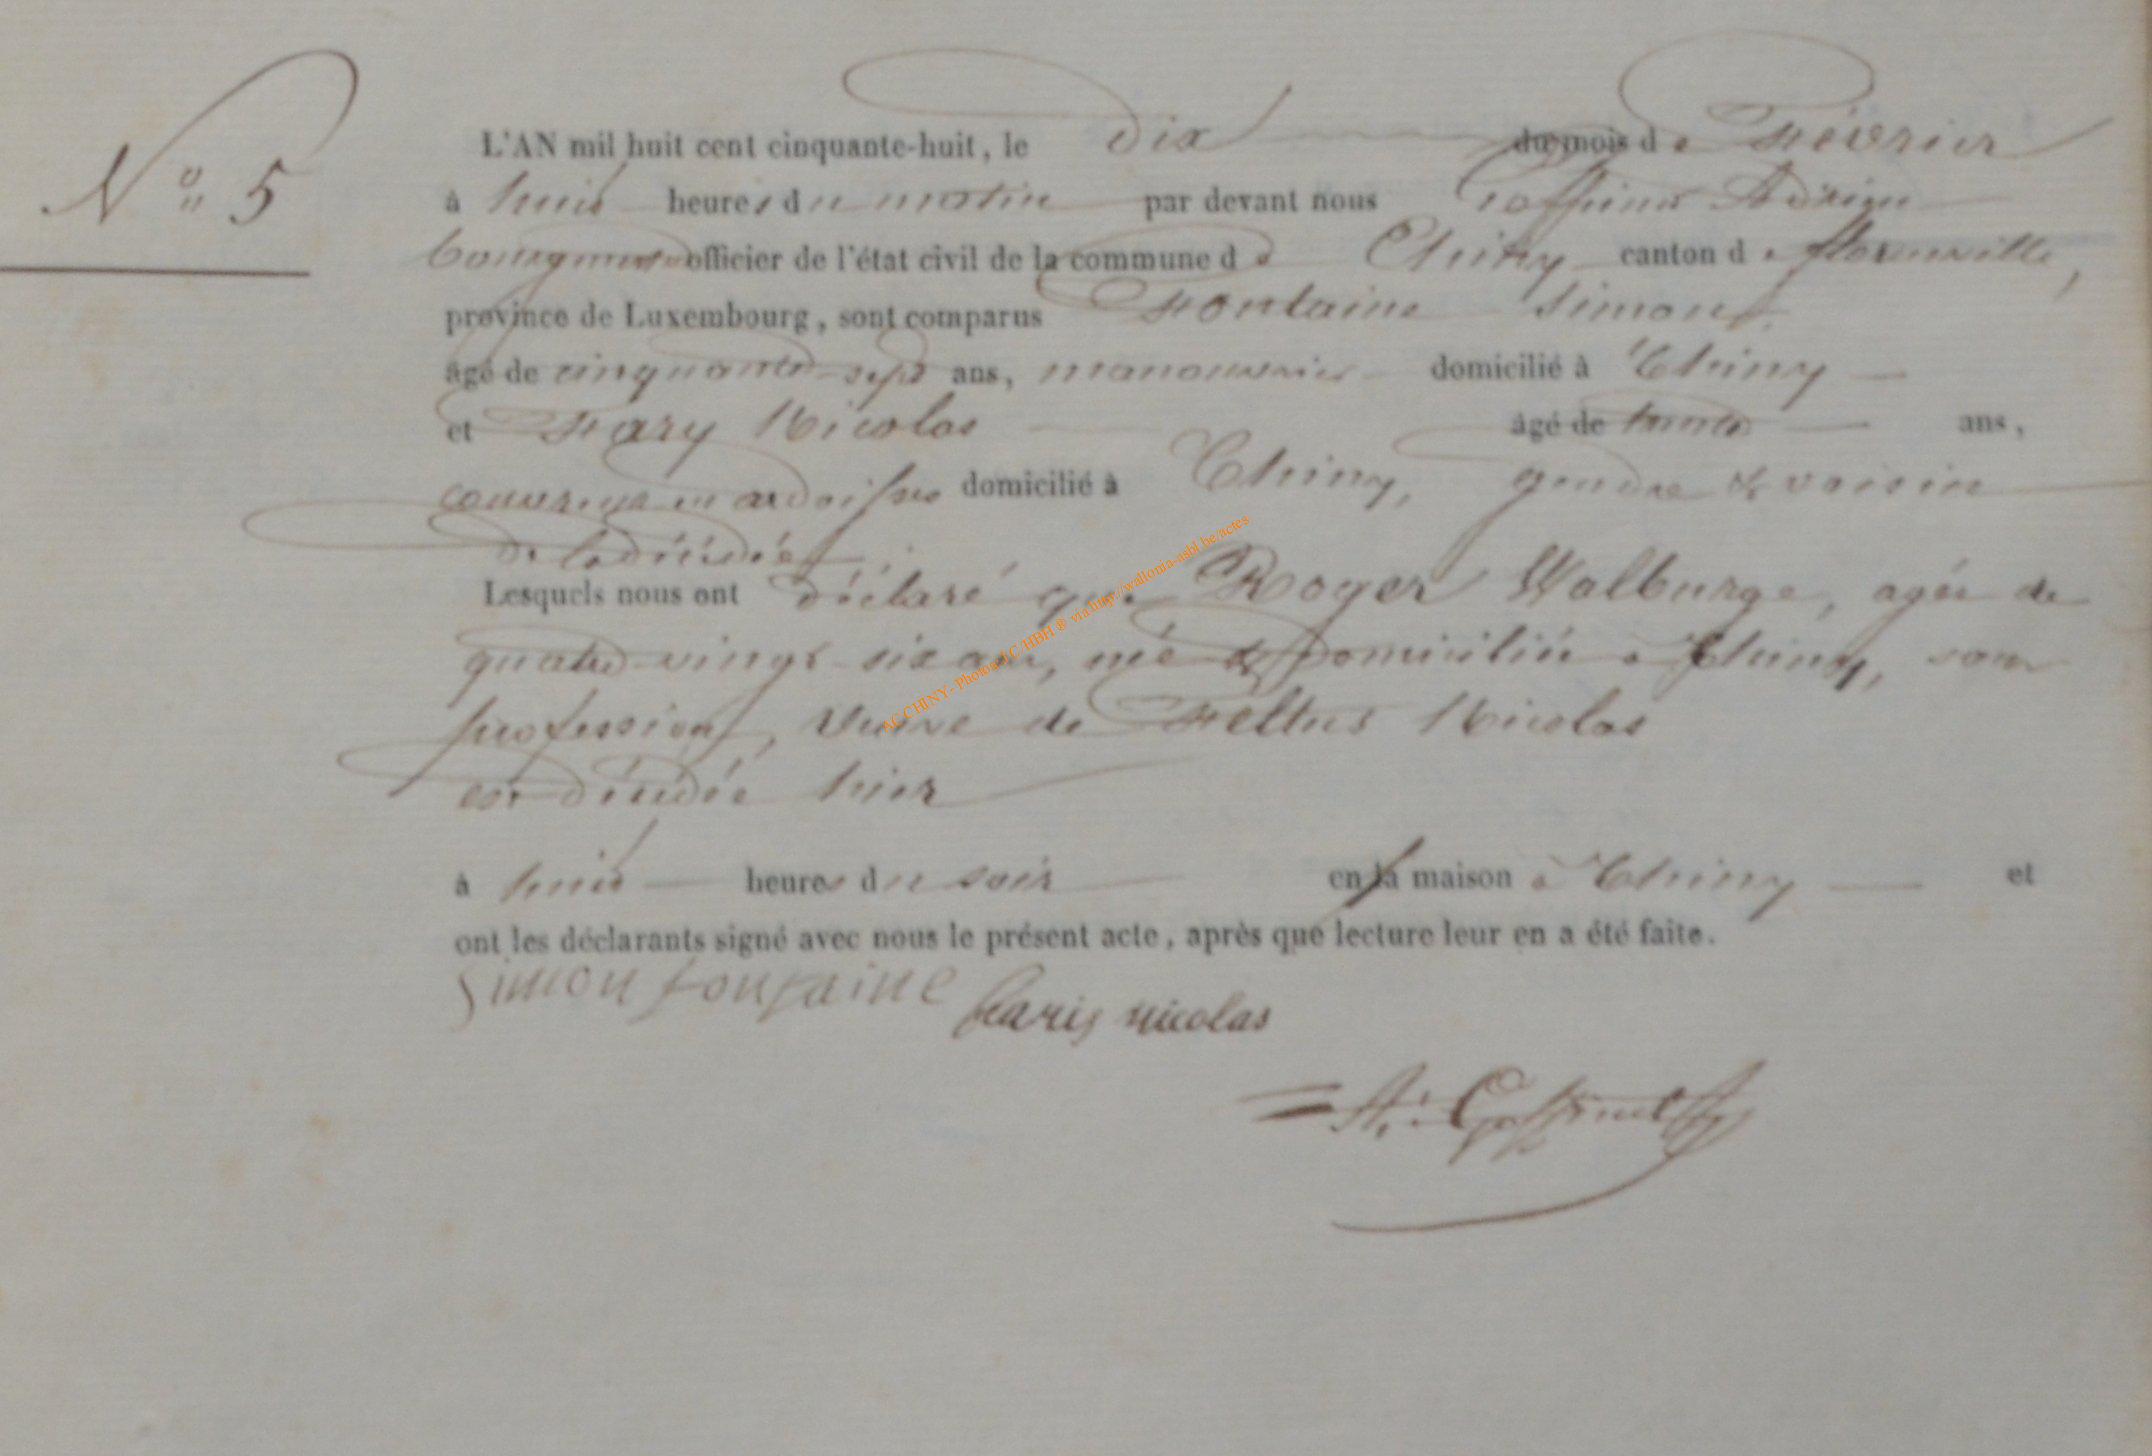 N° 5
L'AN mil huit cent cinquante-huit, le dix du mois de Février
à huit heures du matin par devant nous Goffinet Adrien
bourgmestre officier de l'état civil de la commune de Chiny canton de florenville,
province de Luxembourg, sont comparus Fontaine Simon
âgé de cinquante-sept ans, manouvrier domicilié à Chiny
et Fary Nicolas âgé de trente ans,
couvreur en ardoises domicilié à Chiny, gendre & voisin
de la décédée
Lesquels nous ont déclaré que Roger Walburge, agée de
quatre-vingt-six ans, née & domiciliée à Chiny, sans
profession, veuve de Feltus Nicolas
est décédée hier
à huit heures du soir en sa maison à Chiny et
ont les déclarants signé avec nous le présent acte, après que lecture leur en a été faite.
Simon fontaine
nicolas
A. Goffinet
AC CHINY - Photos LC HBH ® via http://wallonia-asbl.be/actes